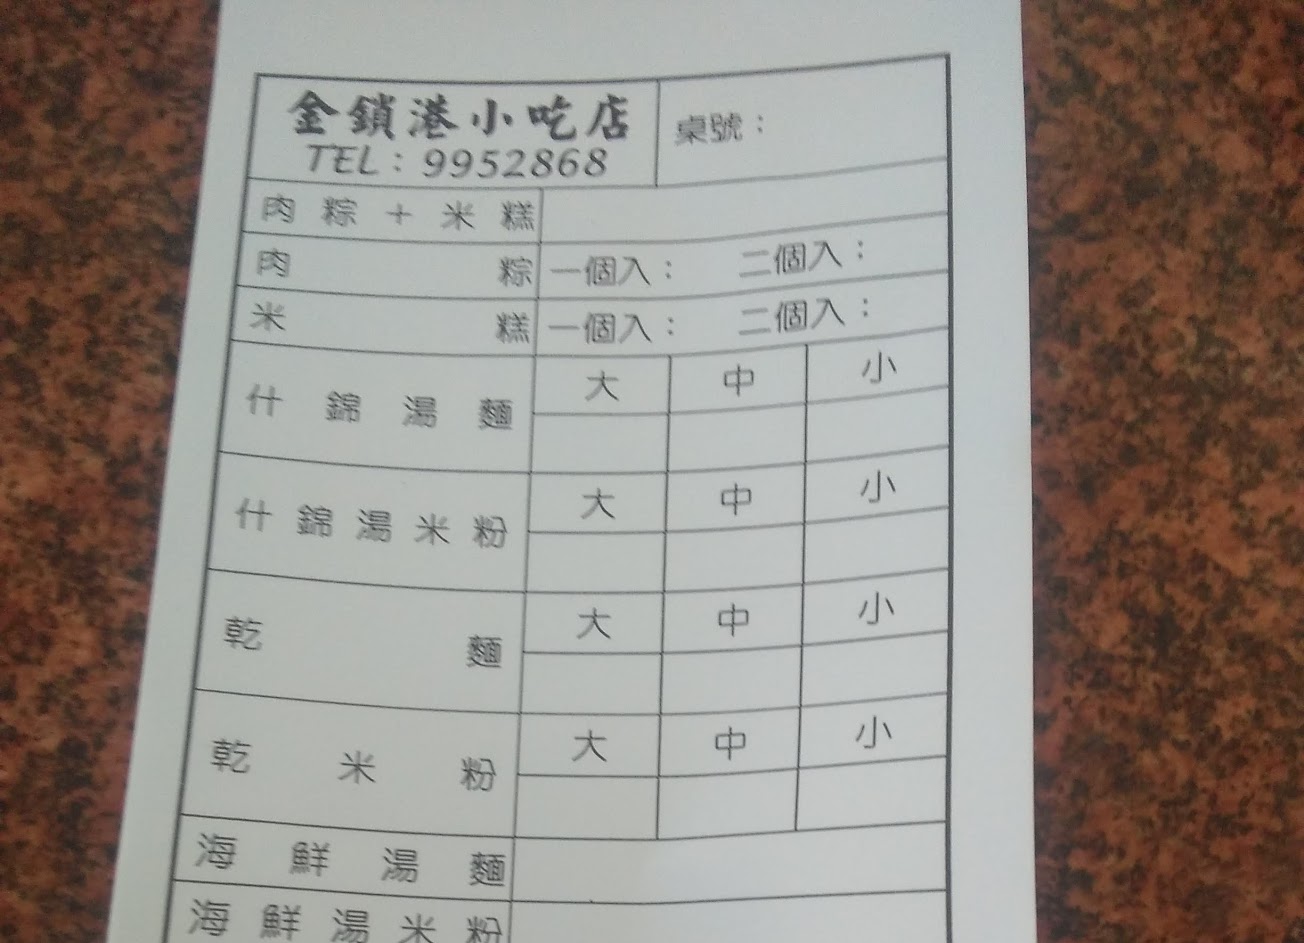 金鎖港小吃店
TEL：9952868
桌號：
肉粽＋米糕
肉粽 一個入： 二個入：
米糕 一個入： 二個入：
什錦湯麵 大 中 小
什錦湯米粉 大 中 小
乾麵 大 中 小
乾米粉 大 中 小
海鮮湯麵
海鮮湯米粉